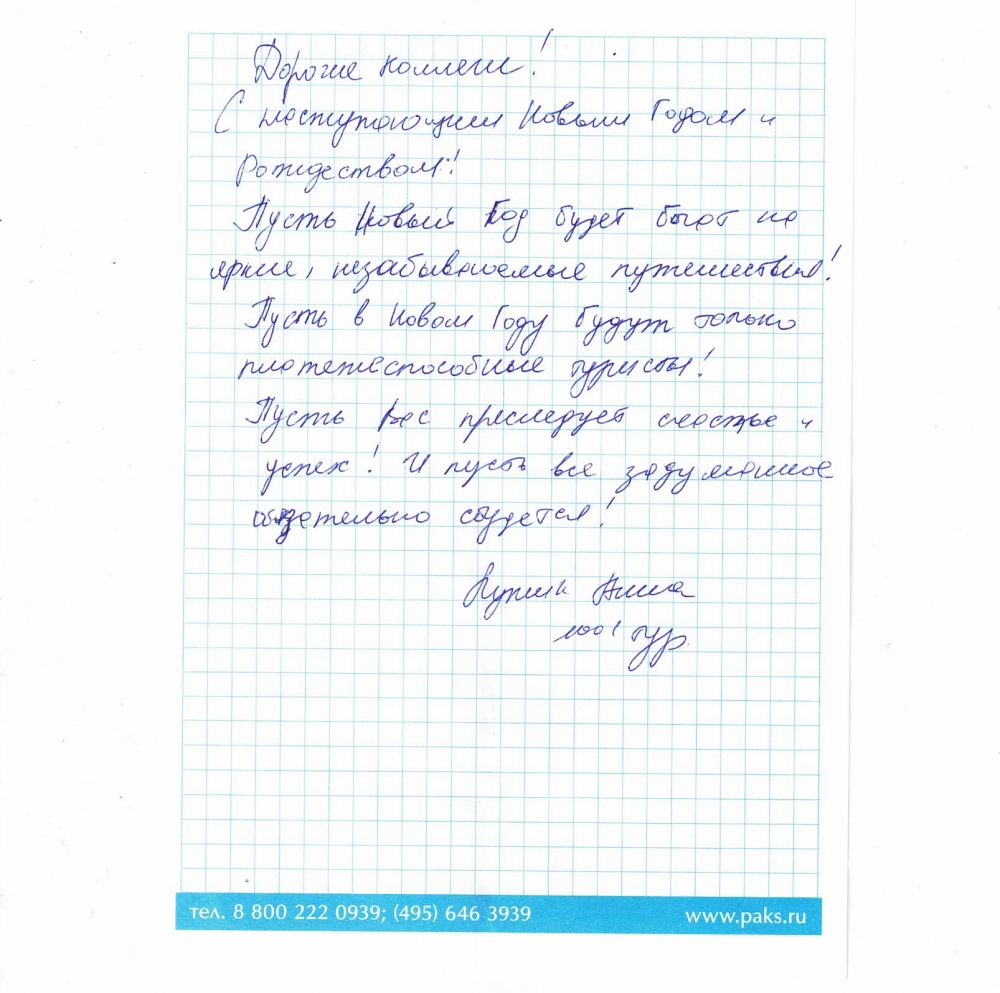 Дорогие коллеги!
С наступающим Новым Годом и
Рождеством!
Пусть Новый Год будет богат на
яркие, незабываемые путешествия!
Пусть в Новом Году будут только
платежеспособные туристы!
Пусть Вас преследует счастье и
успех! И пусть все задуманное
обязательно сбудется!
Анна
1001 тур.
тел. 8 800 222 0939; (495) 646 3939
www.paks.ru